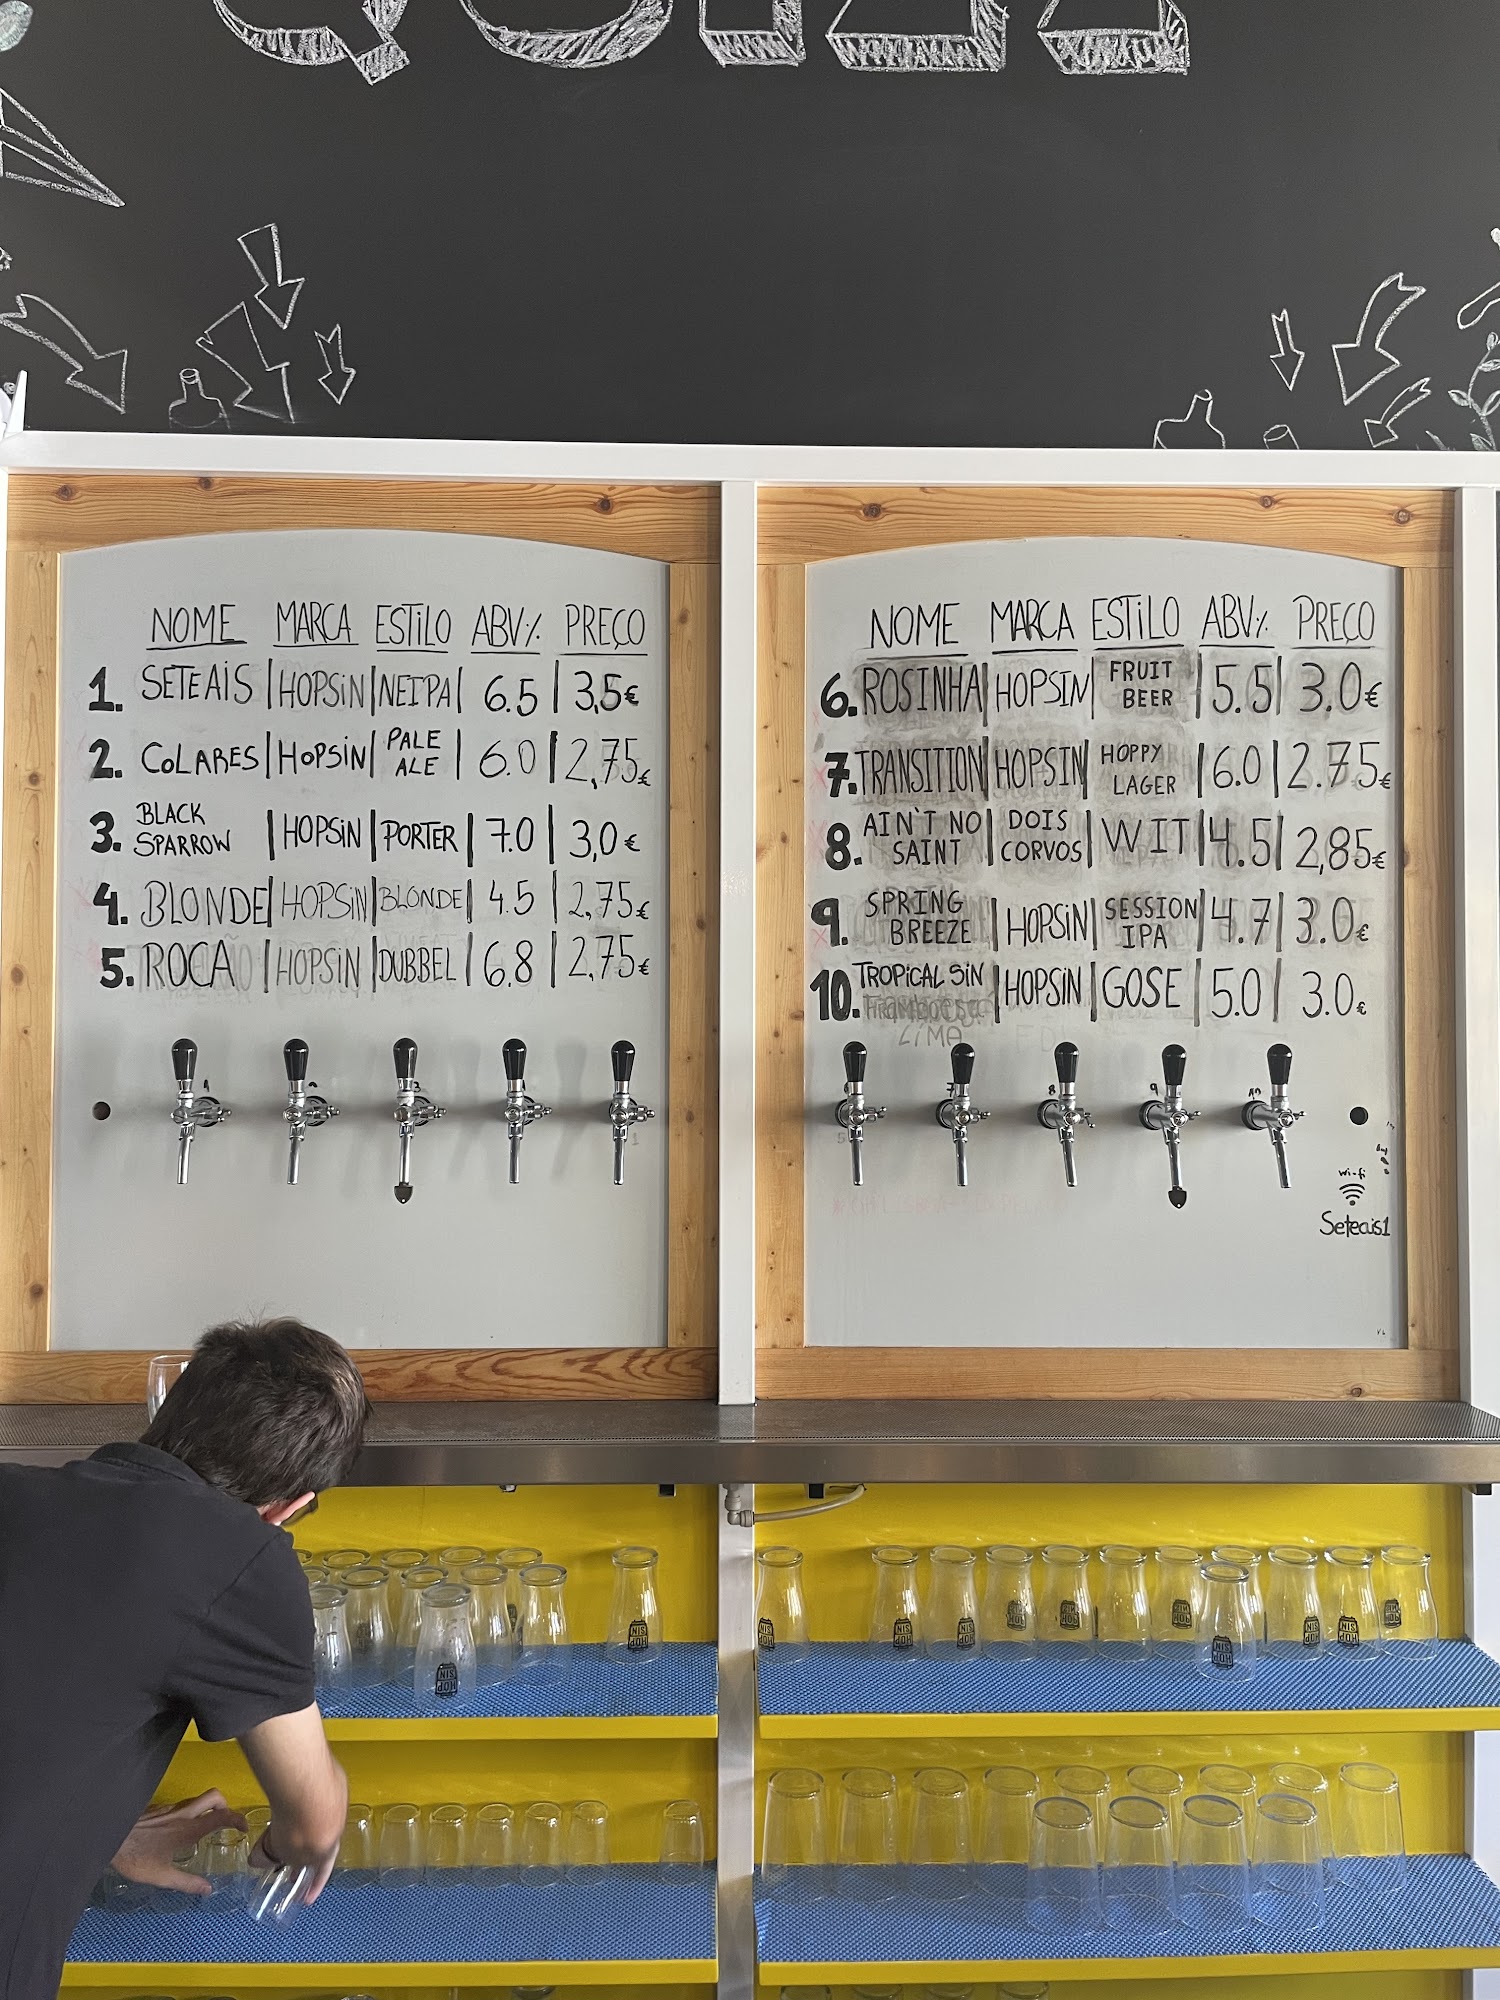 QUIZZ
NOME MARCA ESTILO ABV% PREÇO
1. SETEAIS | HOPSiN | NEIPA | 6.5 | 3,5€
2. COLARES | HOPSiN | PALE ALE | 6.0 | 2,75€
3. BLACK SPARROW | HOPSiN | PORTER | 7.0 | 3,0€
4. BLONDE | HOPSiN | BLONDE | 4.5 | 2,75€
5. ROCA | HOPSiN | DUBBEL | 6.8 | 2,75€
NOME MARCA ESTILO ABV% PREÇO
6. ROSINHA | HOPSIN | FRUIT BEER | 5.5 | 3.0€
7. TRANSITION | HOPSIN | HOPPY LAGER | 6.0 | 2.75€
8. AIN'T NO SAINT | DOIS CORVOS | WIT | 4.5 | 2,85€
9. SPRING BREEZE | HOPSIN | SESSION IPA | 4.7 | 3.0€
10. TROPICAL SiN | HOPSIN | GOSE | 5.0 | 3.0€
Framboesa
LIMA
3
7 8 9
wi-fi
Seteais1
HOP SIN